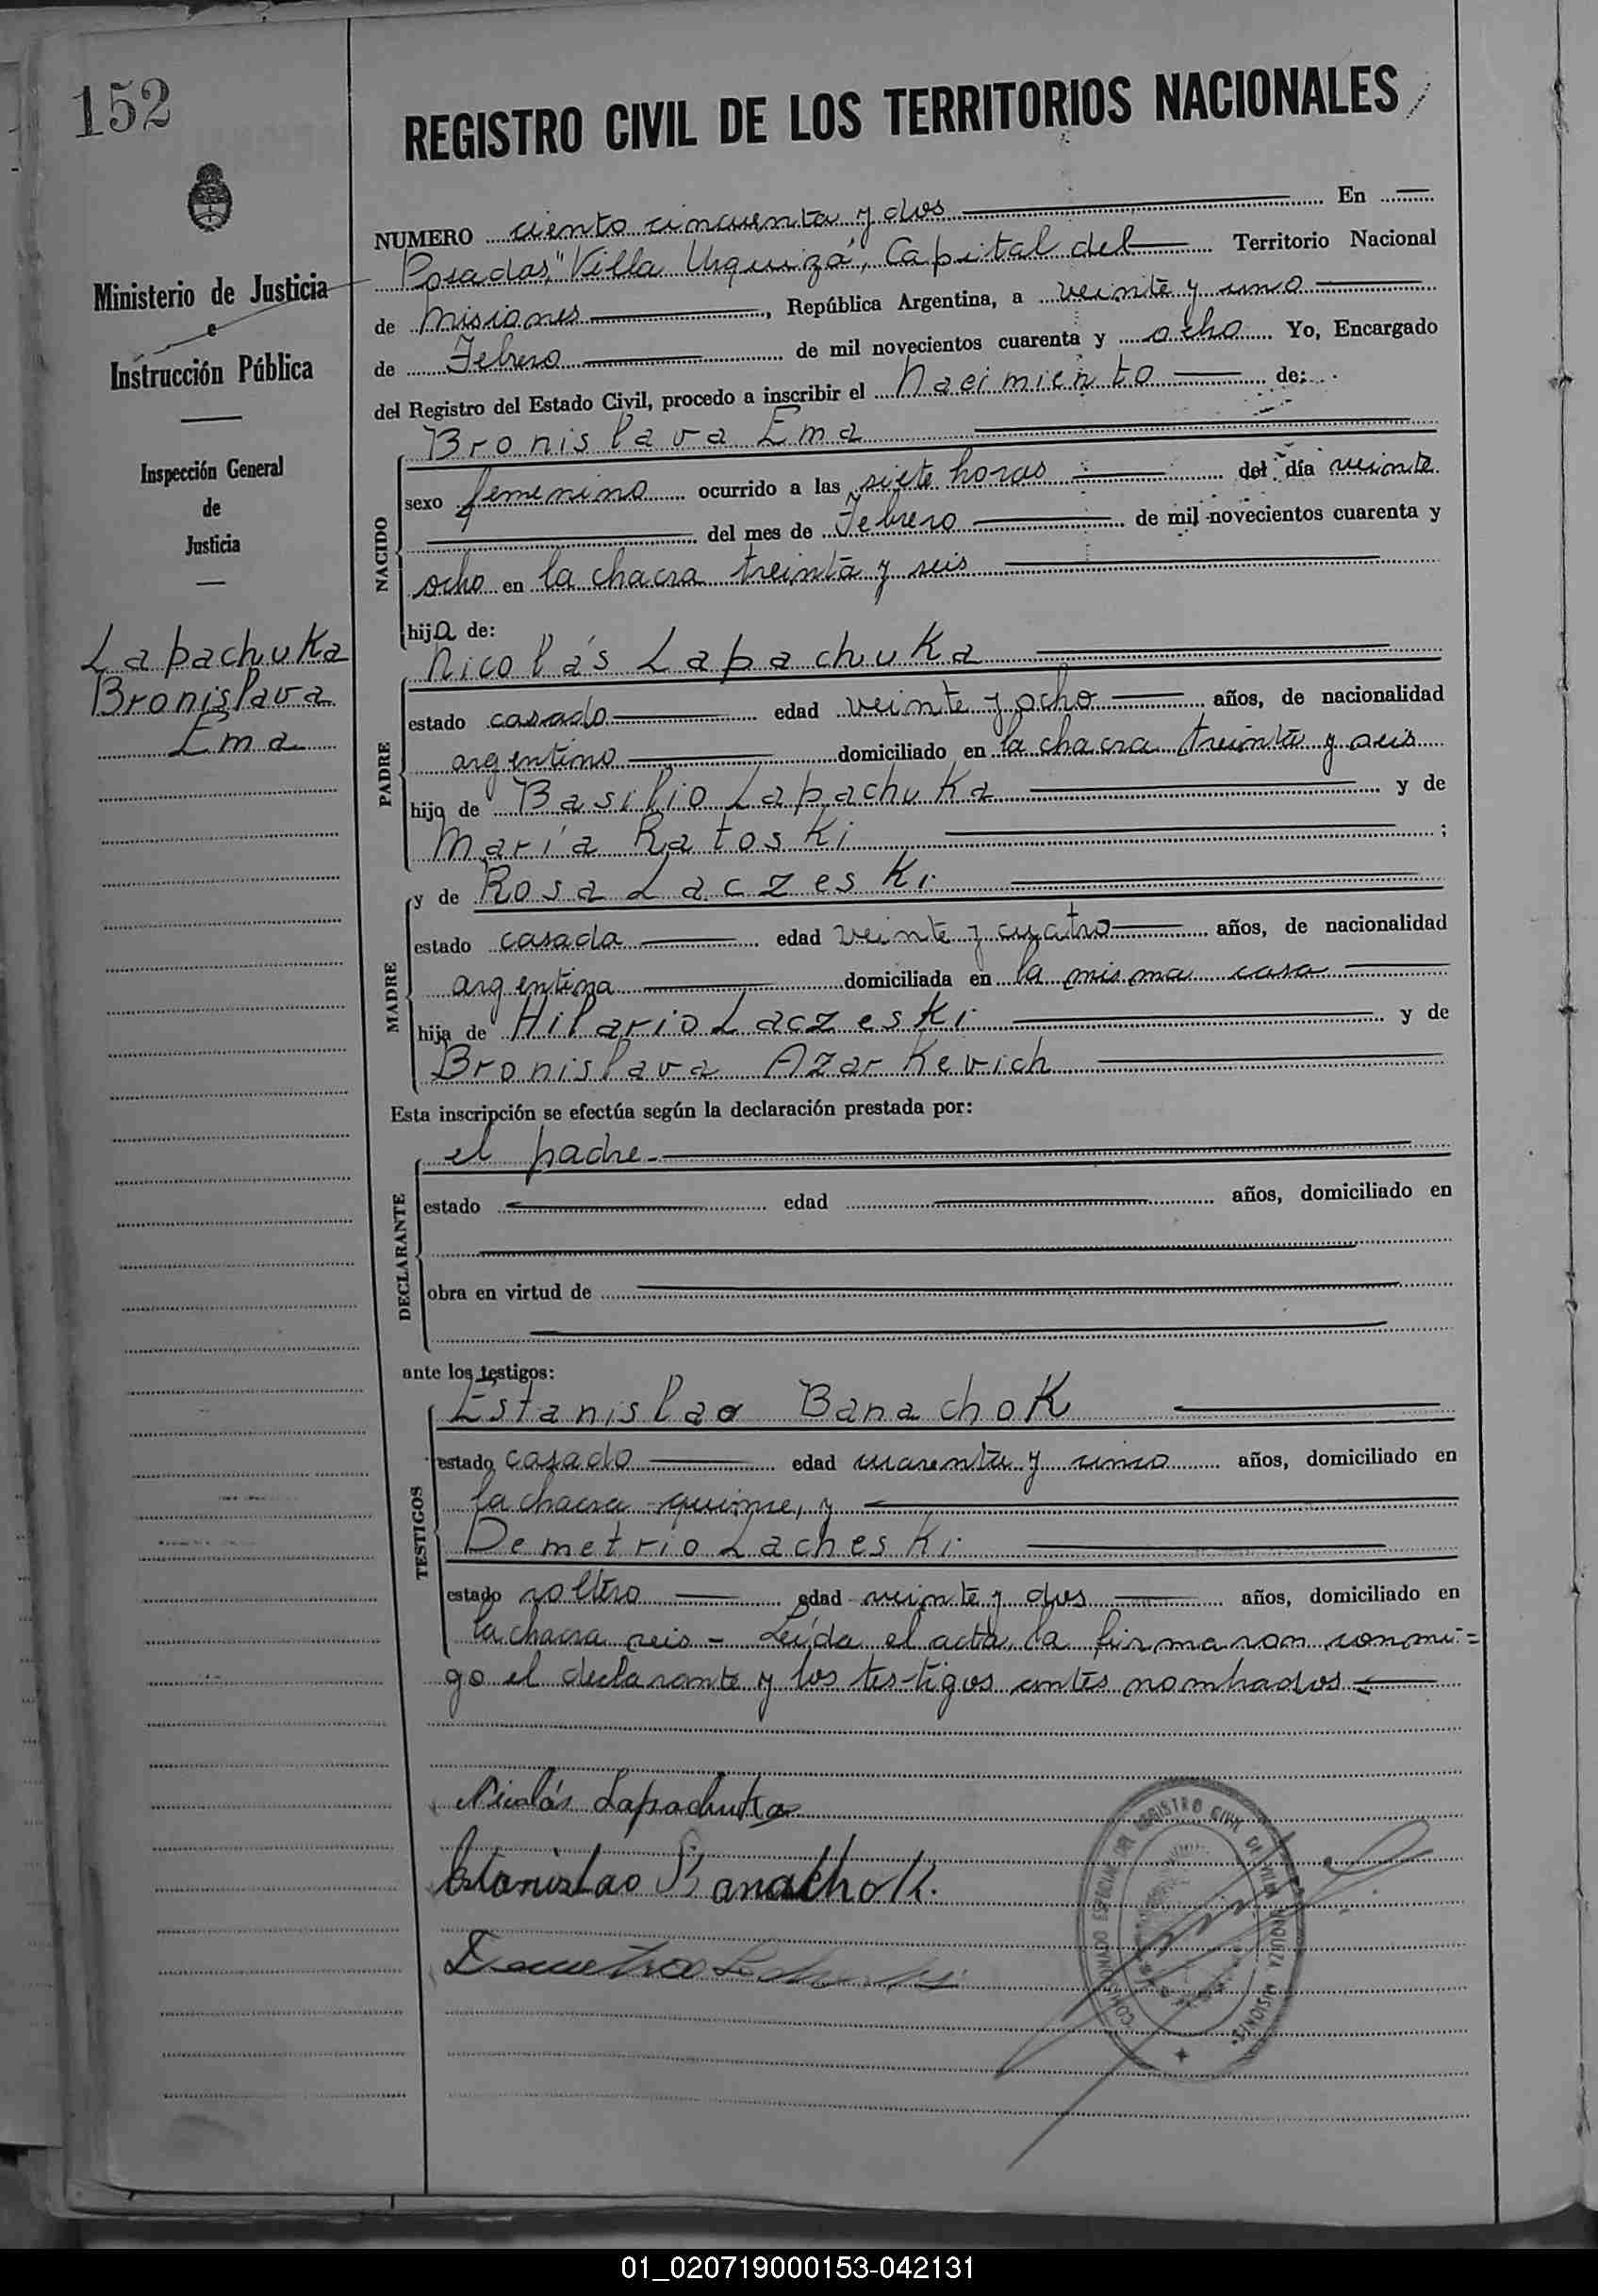 152
REGISTRO CIVIL DE LOS TERRITORIOS NACIONALES
Ministerio de Justicia
e
Instrucción Pública
Inspección General
de
Justicia
Lapachuka
Bronislava
Ema
NUMERO ciento cincuenta y dos En
Posadas, "Villa Urquiza", Capital del Territorio Nacional
de Misiones, República Argentina, a veinte y uno
de Febrero de mil novecientos cuarenta y ocho Yo, Encargado
del Registro del Estado Civil, procedo a inscribir el Nacimiento de:
NACIDO
Bronislava Ema
sexo femenino ocurrido a las siete horas del día veinte
del mes de Febrero de mil novecientos cuarenta y
ocho en la chacra treinta y seis
hija de:
PADRE
Nicolás Lapachuka
estado casado edad veinte y ocho años, de nacionalidad
argentino domiciliado en la chacra treinta y seis
hijo de Basilio Lapachuka y de
María Ratoski ;
MADRE
y de Rosa Laczeski
estado casada edad veinte y cuatro años, de nacionalidad
argentina domiciliada en la misma casa
hija de Hilario Laczeski y de
Bronislava Azarkevich
Esta inscripción se efectúa según la declaración prestada por:
DECLARANTE
el padre
estado edad años, domiciliado en
obra en virtud de
ante los testigos:
TESTIGOS
Estanislao Banachok
estado casado edad cuarenta y uno años, domiciliado en
la chacra quince, y
Demetrio Lacheski
estado soltero edad veinte y dos años, domiciliado en
la chacra seis - Leída el acta la firmaron conmi=
go el declarante y los testigos antes nombrados
Nicolás Lapachuka
Estanislao Banachok.
REGISTRO CIVIL DE VILLA URQUIZA MISIONES
01_020719000153-042131